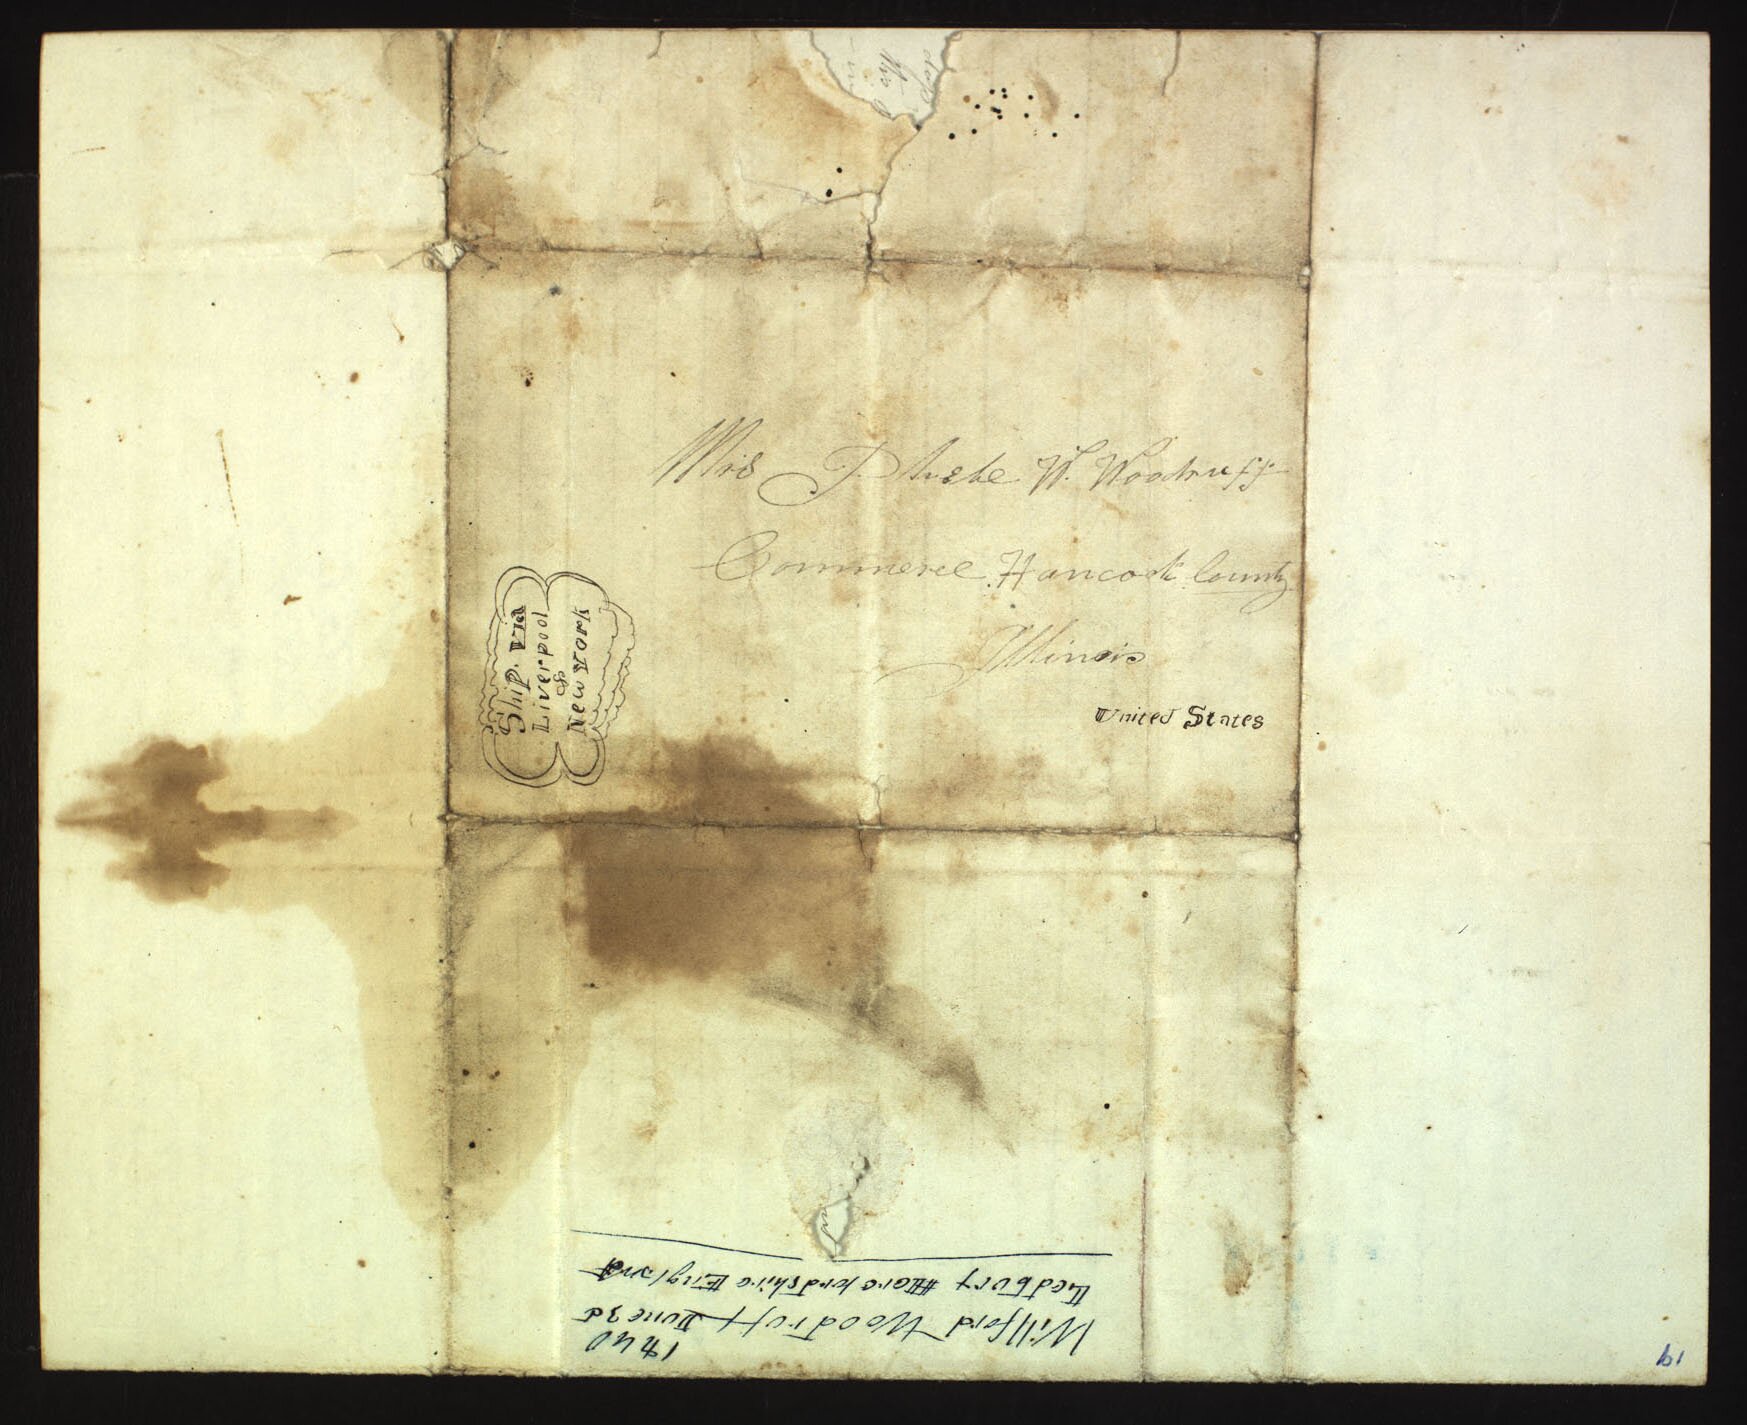 Mrs Phebe W. Woodruff
Commerce Hancock County
Illinois
United States
Ship. via
Liverpool
&
New York
1840
Willford Woodruff June 3d
Ledbury Herefordshire England
19